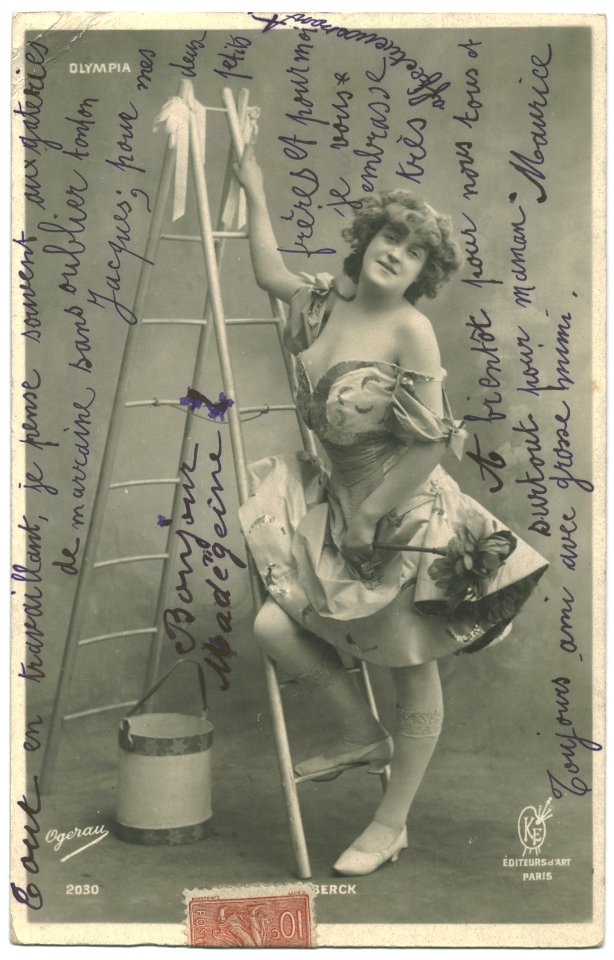 OLYMPIA
Tout en travaillant, je pense souvent aux gateries
de marraine sans oublier tonton
Jacques; pour mes deux petits
frères et pour moi
je vous
embrasse
très
affectueusement
A bientôt pour nous tous et
surtout pour maman Maurice
Toujours ami avec grosse mimi.
Bonjour
Madegeine !
Ogerau
2030
BERCK
KE
ÉDITEURS d'ART
PARIS
POSTES
10